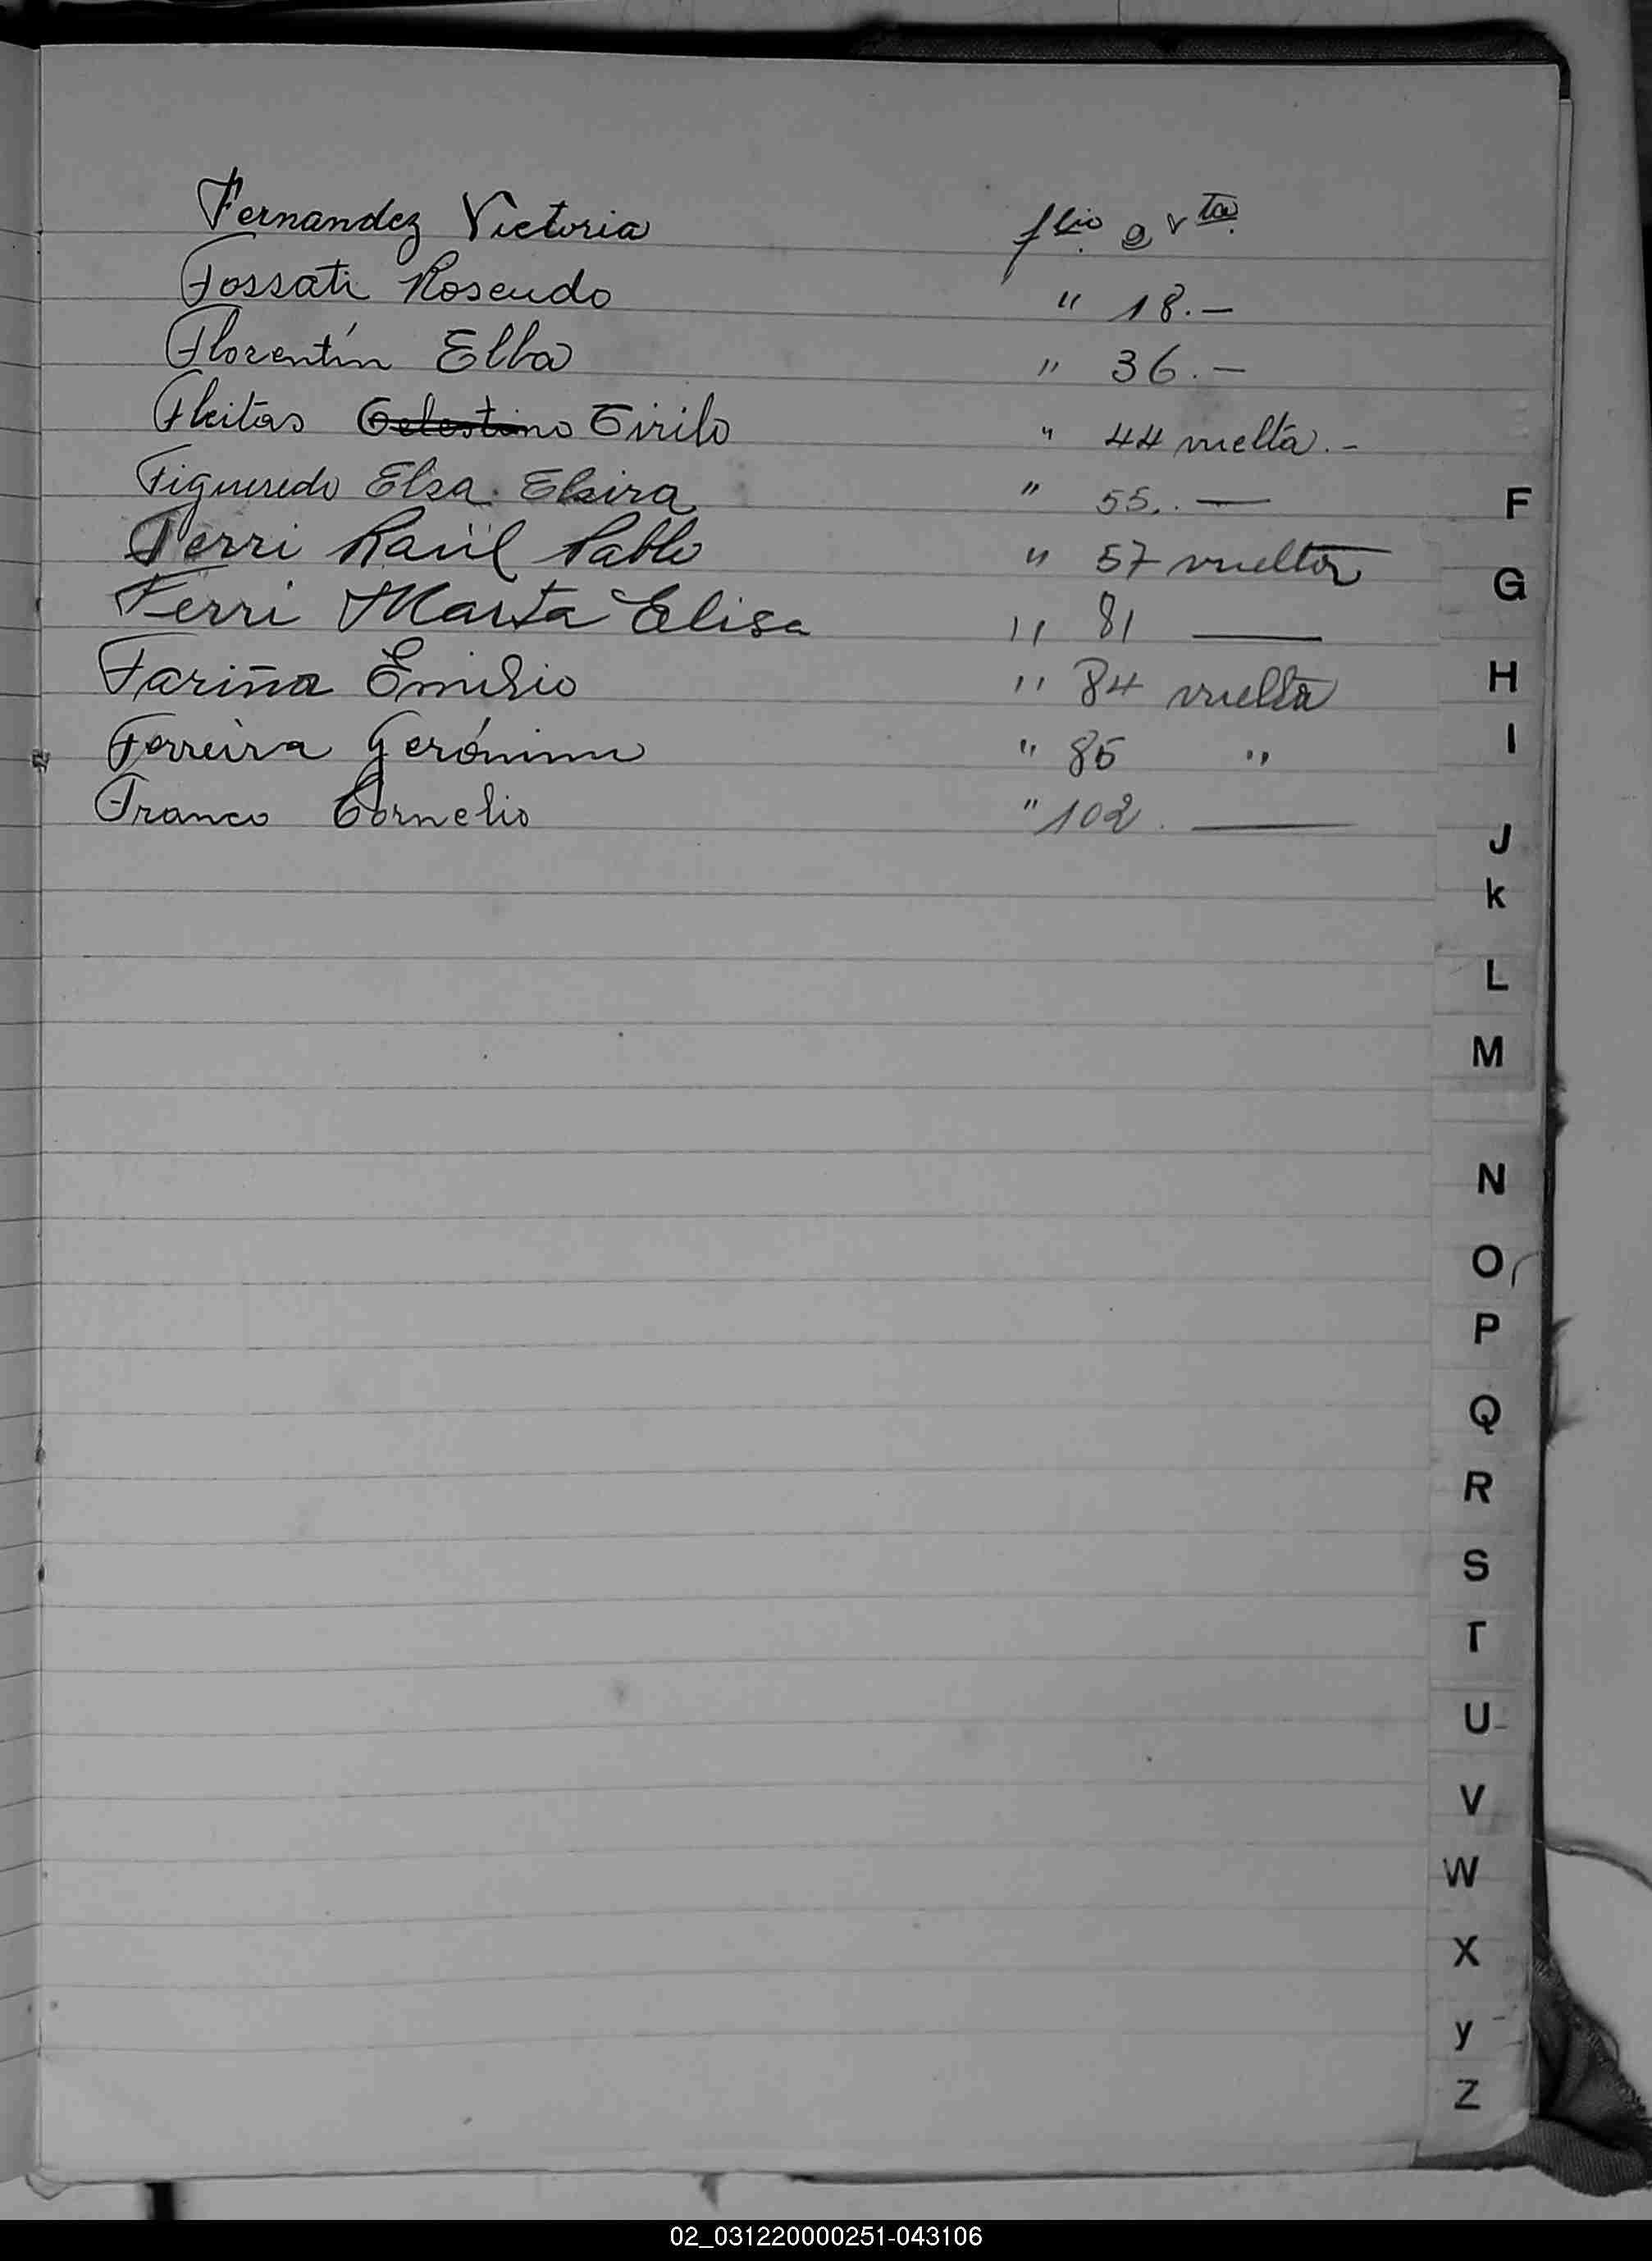 Fernandez Victoria flio 2 vta.
Fossati Rosendo " 18.—
Florentín Elba " 36.—
Fleitas Celestino Cirilo " 44 vuelta.-
Figueredo Elsa Elvira " 55. —
Ferri Raúl Pablo " 57 vuelta
Ferri Marta Elisa " 81 —
Fariña Emilio " 84 vuelta
Ferreira Gerónimo " 85 "
Franco Cornelio " 102. —
F
G
H
I
J
k
L
M
N
O
P
Q
R
S
T
U
V
W
X
y
Z
02_031220000251-043106